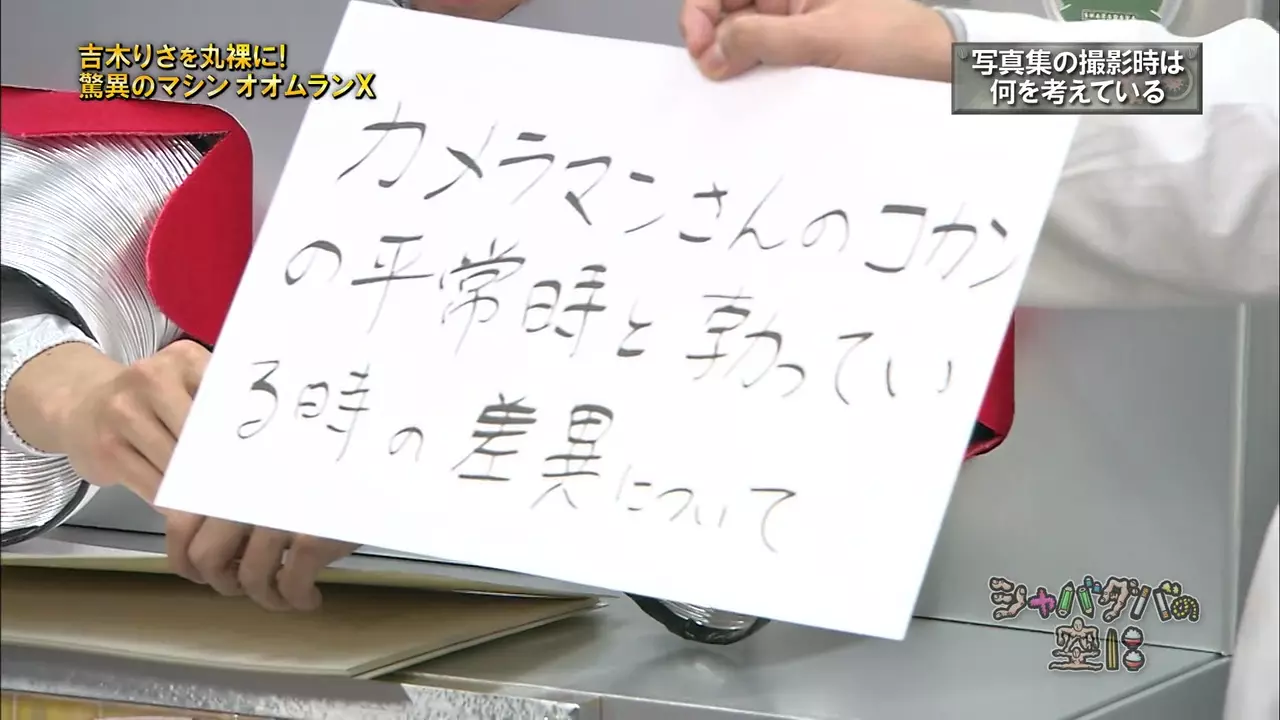 吉木りさを丸裸に!
驚異のマシン オオムランX
写真集の撮影時は
何を考えている
カメラマンさんのコカン
の平常時と勃ってい
る時の差異について
シャバダバの
空!8